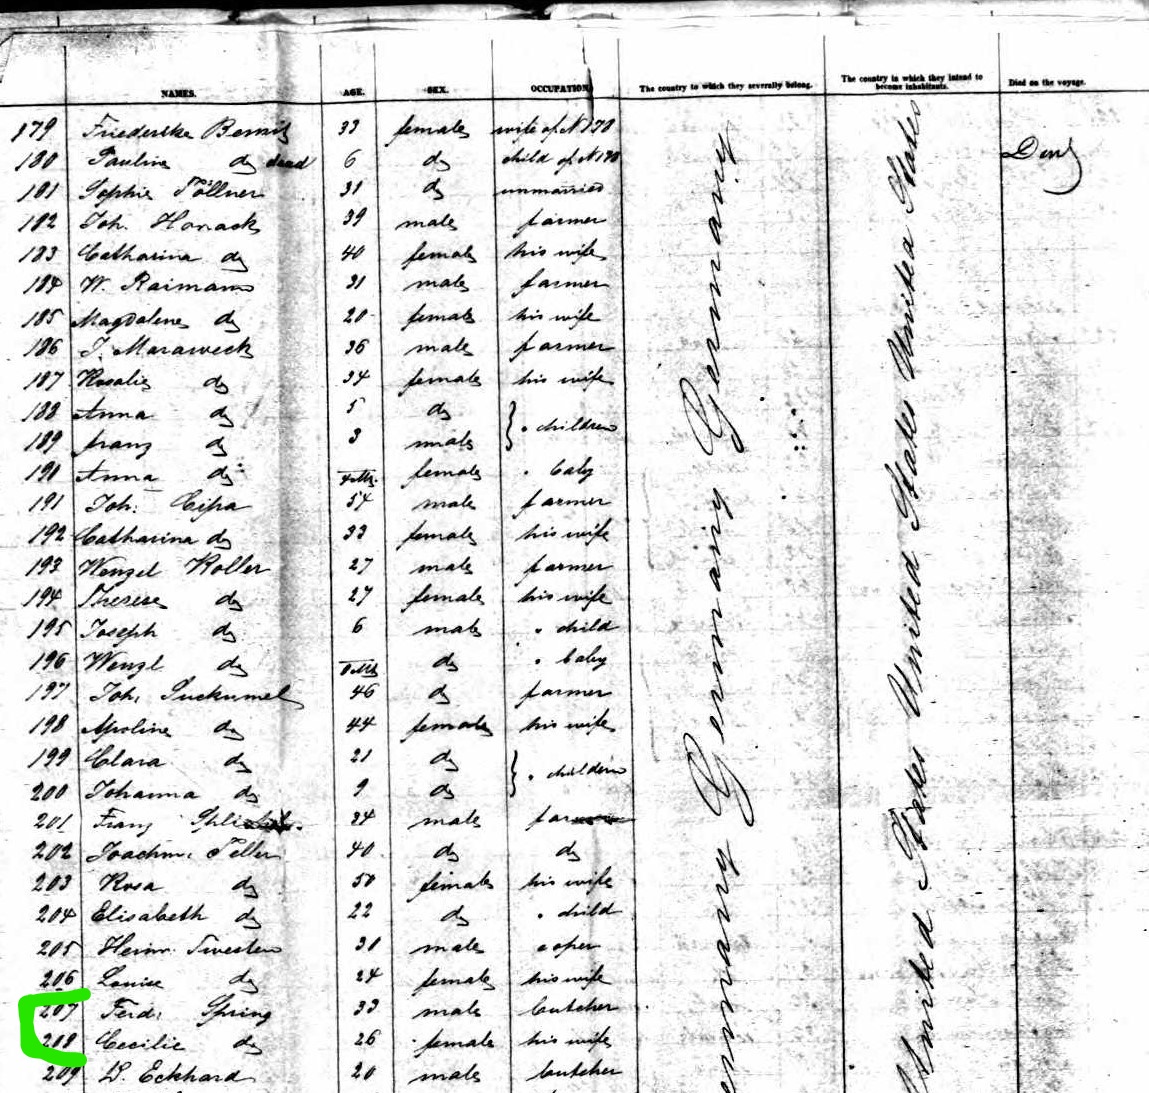 NAMES. AGE. SEX. OCCUPATION The country to which they severally belong. The country in which they intend to become inhabitants. Died on the voyage.
179 Friederike 33 female wife of N 178
180 Pauline do dead 6 do child of N 178
181 Sophie Töllner 31 do unmarried
182 Joh. Honack 39 male farmer
183 Catharina do 40 female his wife
184 W. Raimann 31 male farmer
185 Magdalene do 20 female his wife
186 J. Maraweck 36 male farmer
187 Rosalie do 34 female his wife
188 Anna do 5 do children
189 Franz do 3 male
190 Anna do female " baby
191 Joh. Cipa 54 male farmer
192 Catharina do 33 female his wife
193 Wenzel Koller 27 male farmer
194 Therese do 27 female his wife
195 Joseph do 6 male " child
196 Wenzl do do " baby
197 Joh. 46 do farmer
198 Apoline do 44 female his wife
199 Clara do 21 do " children
200 Johanna do 9 do
201 Franz 34 male farmer
202 Joachim Teller 40 do do
203 Rosa do 50 female his wife
204 Elisabeth do 22 do " child
205 Heinr. Twesten 30 male
206 Louise do 24 female his wife
207 Ferd. Spring 33 male butcher
208 Cecilie do 26 female his wife
209 D. Eckhard 20 male butcher
Germany Germany Germany
United States United States United States